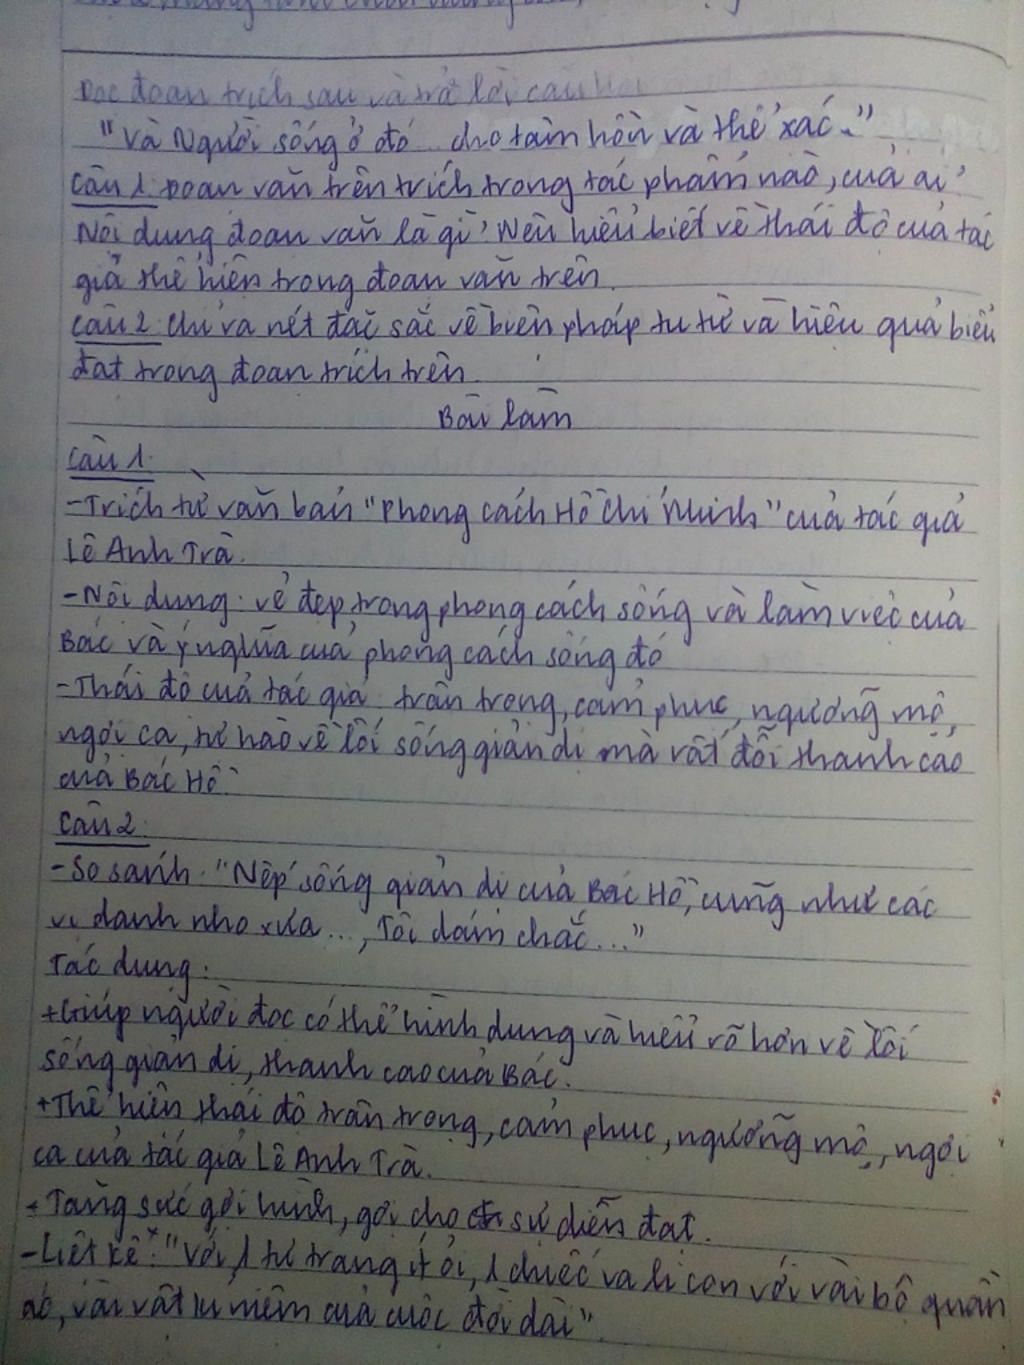 Đọc đoạn trích sau và trả lời câu hỏi
"Và Người sống ở đó... cho tâm hồn và thể xác."
Câu 1: Đoạn văn trên trích trong tác phẩm nào, của ai?
Nội dung đoạn văn là gì? Nêu hiểu biết về thái độ của tác
giả thể hiện trong đoạn văn trên.
Câu 2: Chỉ ra nét đặc sắc về biện pháp tu từ và hiệu quả biểu
đạt trong đoạn trích trên.
Bài làm
Câu 1:
- Trích từ văn bản "Phong cách Hồ Chí Minh" của tác giả
Lê Anh Trà.
- Nội dung: vẻ đẹp trong phong cách sống và làm việc của
Bác và ý nghĩa của phong cách sống đó
- Thái độ của tác giả: trân trọng, cảm phục, ngưỡng mộ,
ngợi ca, tự hào về lối sống giản dị mà rất đỗi thanh cao
của Bác Hồ.
Câu 2:
- So sánh: "Nếp sống giản dị của Bác Hồ, cũng như các
vị danh nho xưa..., Tôi dám chắc..."
Tác dụng:
+ Giúp người đọc có thể hình dung và hiểu rõ hơn về lối
sống giản dị, thanh cao của Bác.
+ Thể hiện thái độ trân trọng, cảm phục, ngưỡng mộ, ngợi
ca của tác giả Lê Anh Trà.
+ Tăng sức gợi hình, gợi cho sự diễn đạt.
- Liệt kê: "Với 1 tư trang ít ỏi, 1 chiếc va li con với vài bộ quần
áo, vài vật kỉ niệm của cuộc đời dài".